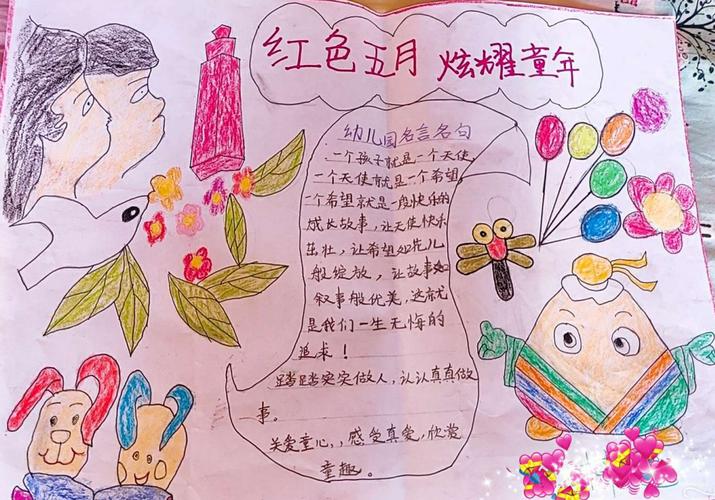 红色五月 炫耀童年
幼儿园名言名句
一个孩子就是一个天使,
一个天使就是一个希望,
一个希望就是一段快乐的
成长故事，让天使快乐
茁壮，让希望如花儿
般绽放，让故事如
叙事般优美，这就
是我们一生无悔的
追求！
踏踏实实做人，认认真真做
事。
关爱童心，，感受真爱，欣赏
童趣。